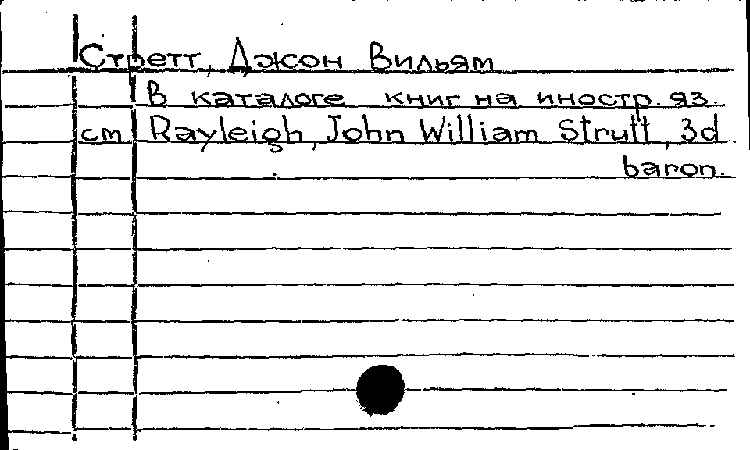 Стретт, Джон Вильям
В каталоге книг на иностр. яз.
см Rayleigh, John William Strutt, 3d
baron.